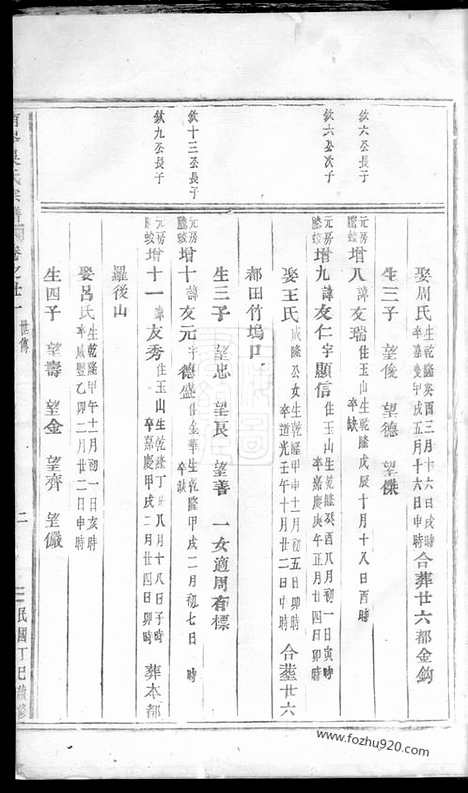 娶周氏生乾隆癸酉三月十六日戌時卒嘉慶甲戌五月十六日申時合葬廿六都金鈎
生三子 望俊 望德 望傑
欽六公長子
元房隆蛟增八諱友瑞住玉山生乾隆戊辰十月十八日酉時卒缺
欽六公次子
元房隆蛟增九諱友仁字顯信住玉山生乾隆癸酉八月初一日寅時卒嘉慶庚午正月廿四日卯時
娶王氏咸隆公女生乾隆甲申十一月初五日卯時卒道光壬午十月廿二日申時合葬廿六
都田竹塢口
生三子 望忠 望艮 望善 一女適周有標
欽十三公長子
元房隆蛟增十諱友元字德盛住金華生乾隆甲戌二月初七日 時卒缺
欽九公長子
元房隆蛟增十一諱友秀住玉山生乾隆丁 八月十八日子時卒嘉慶甲戌二月廿四日卯時葬本都
羅後山
娶呂氏生乾隆甲午十一月初一日亥時卒咸豐乙卯二月廿二日申時
生四子 望壽 望金 望齊 望儼
吳氏宗譜 卷之廿一 世傳 二 民國丁巳
www.fozhu920.com